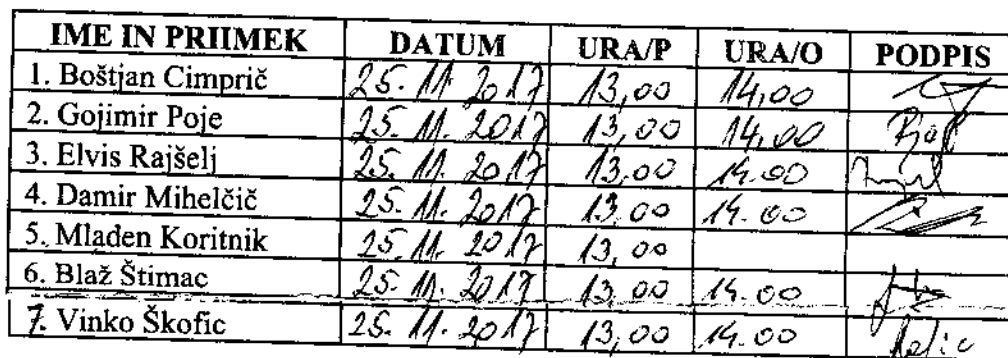 IME IN PRIIMEK DATUM URA/P URA/O PODPIS
1. Boštjan Cimprič 25. 11. 2017 13,00 14,00
2. Gojimir Poje 25. 11. 2017 13,00 14,00
3. Elvis Rajšelj 25. 11. 2017 13,00 14.00
4. Damir Mihelčič 25. 11. 2017 13,00 14.00
5. Mladen Koritnik 25. 11. 2017 13,00
6. Blaž Štimac 25. 11. 2017 13,00 14.00
7. Vinko Škofic 25. 11. 2017 13,00 14.00